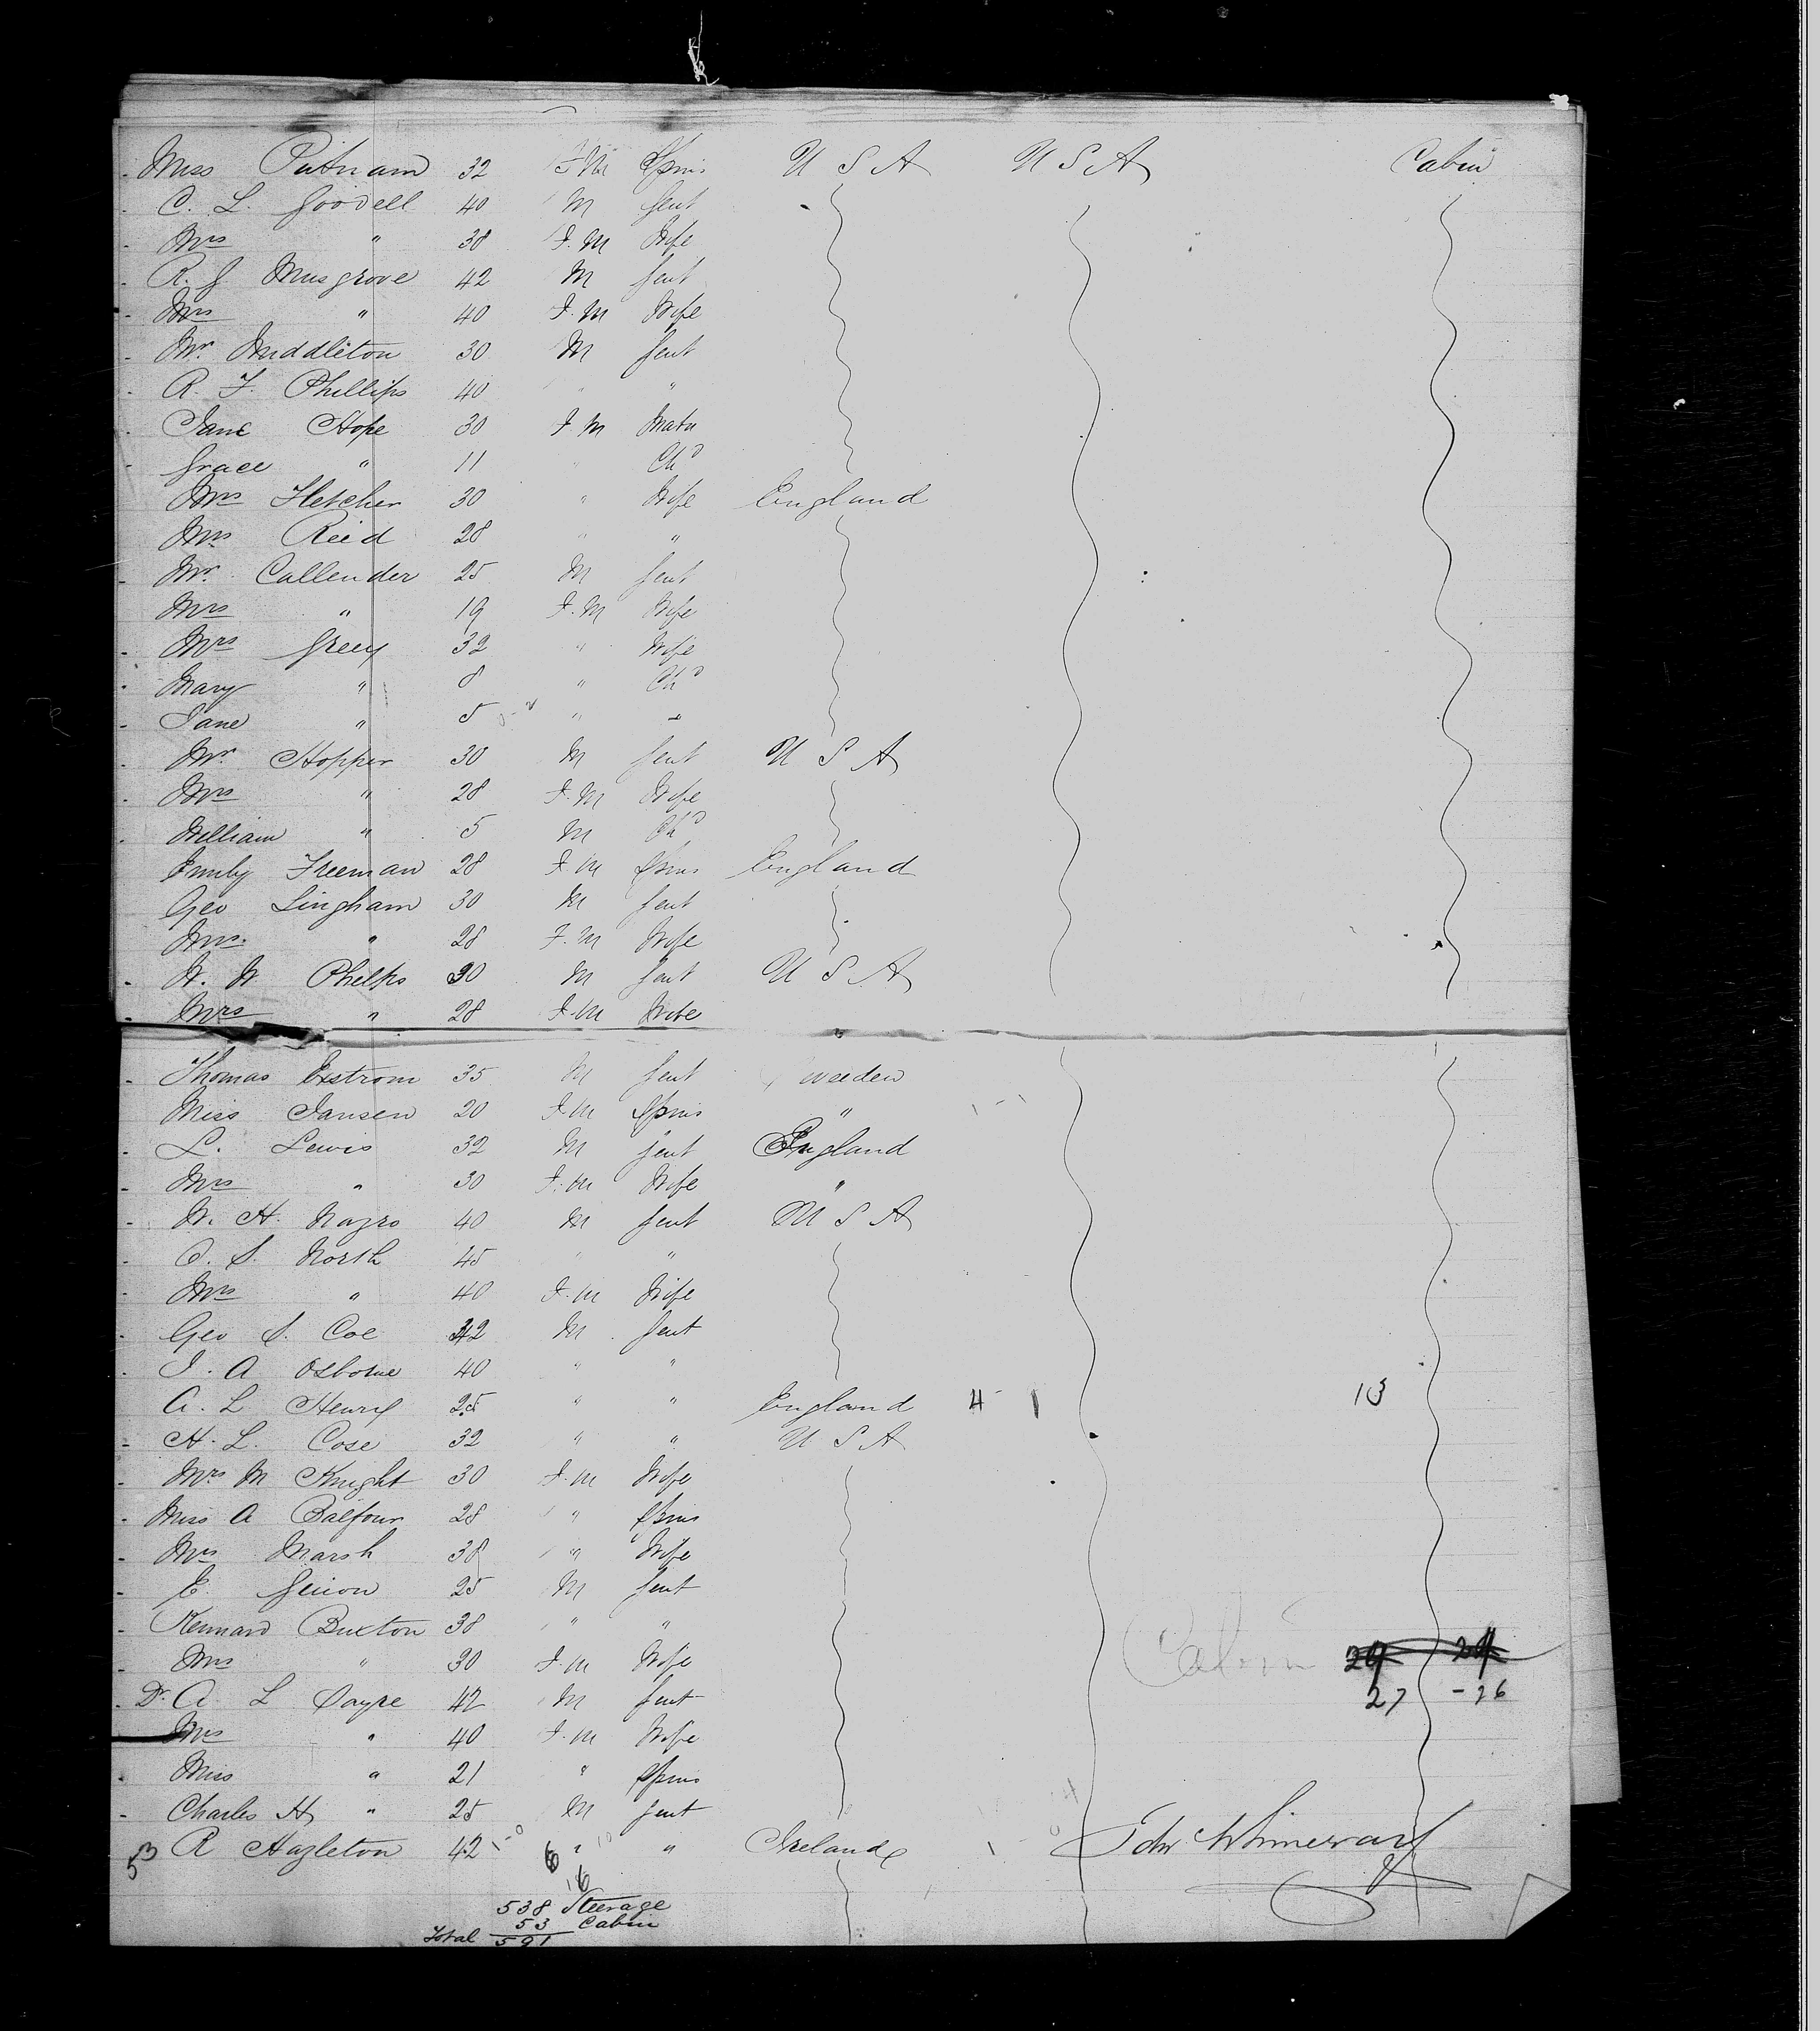 Miss Putnam 32 F M Spins U S A U S A Cabin
C. L. Goodell 40 M Gent
Mrs " 38 F. M Wife
R. J Musgrove 42 M Gent
Mrs " 40 F. M Wife
Mr. Middleton 30 M Gent
R. F. Phillips 40 " "
Jane Hope 30 F M Matn
Grace " 11 " Chd
Mrs Fletcher 30 " Wife England
Mrs Reid 28 " "
Mr. Callender 25 M Gent
Mrs " 19 F. M Wife
Mrs Green 32 " Wife
Mary " 8 " Chd
Jane " 5 " "
Mr. Hopper 30 M Gent U S A
Mrs " 28 F. M Wife
William " 5 M Chd
Emily Freeman 28 F M Spins England
Geo Lingham 30 M Gent
Mrs. " 28 F. M Wife
W. W Phelps 30 M Gent U S A
Mrs " 28 F. M Wife
Thomas Exstrom 35 M Gent Sweeden
Miss Jansen 20 F M Spins "
L. Lewis 32 M Gent England
Mrs " 30 F. M Wife "
W. H. Nazro 40 M Gent U S A
O. S. North 45 " "
Mrs " 40 F. M Wife
Geo S. Coe 42 M Gent
J. A Osborne 40 " "
A. L Henry 25 " " England 4 - 1 13
H. L. Cose 32 " " U S A
Mrs M Knight 30 F. M Wife
Miss A Balfour 28 " Spins
Mrs Marsh 38 " Wife
E. Guion 25 M Gent
Kennard Buxton 38 " "
Mrs " 30 F. M Wife Cabin 29 24
Dr. A L Sayre 42 M Gent 27 - 26
Mrs " 40 F. M Wife
Miss " 21 " Spins
Charles H " 25 M Gent
53 R Hazleton 42 " " Ireland
6
16
538 Steerage
53 Cabin
Total 591